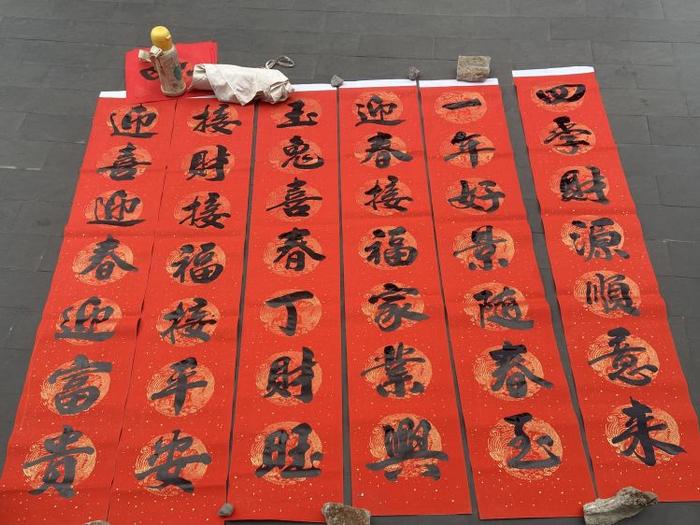 迎喜迎春迎富貴
接財接福接平安
玉兔喜春丁財旺
迎春接福家業興
一年好景隨春至
四季財源順意来